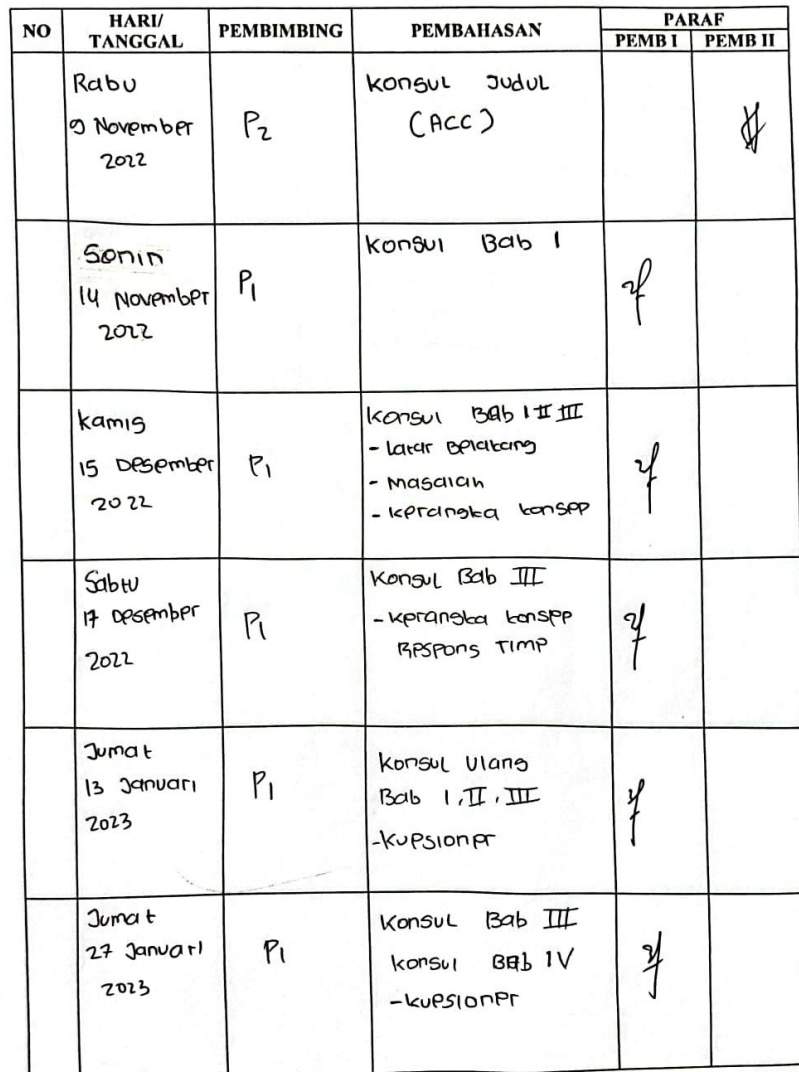 NO HARI/ TANGGAL PEMBIMBING PEMBAHASAN PARAF
PEMB I PEMB II
Rabu
9 November
2022
P2
Konsul Judul
(ACC)
Sonin
14 November
2022
P1
Konsul Bab I
Kamis
15 Desember
2022
P1
Konsul Bab I II III
- Latar Belakang
- Masalah
- Kerangka konsep
Sabtu
17 Desember
2022
P1
Konsul Bab III
- Kerangka konsep
Respons Time
Jumat
13 Januari
2023
P1
Konsul Ulang
Bab I, II, III
- Kuesioner
Jumat
27 Januari
2023
P1
Konsul Bab III
Konsul Bab IV
- Kuesioner